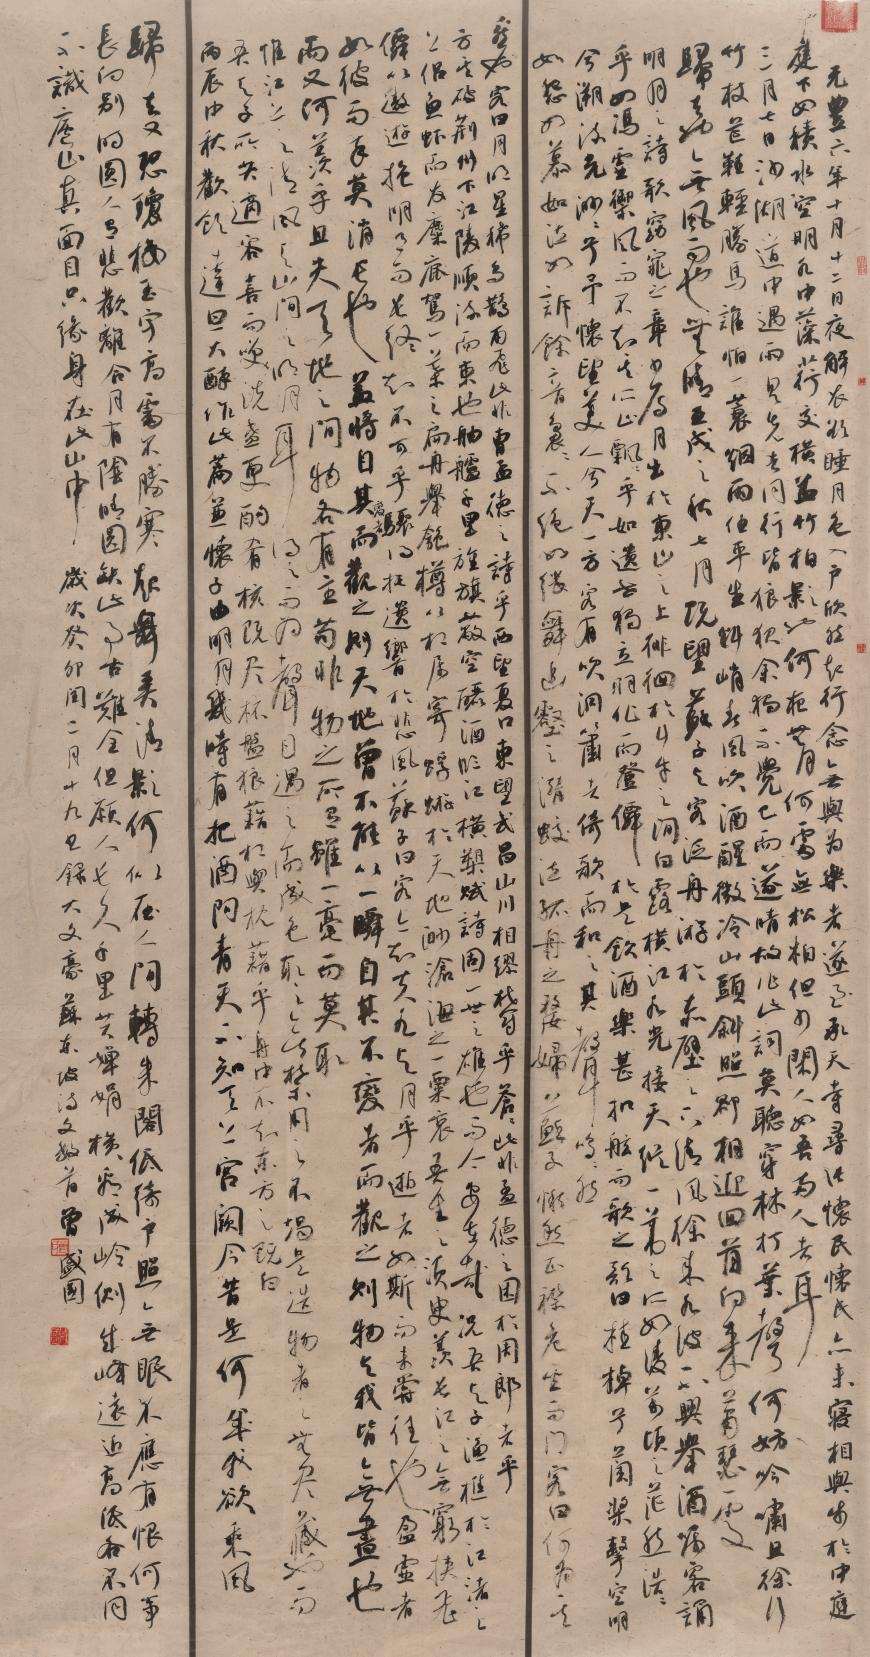 元豐六年十月十二日夜解衣欲睡月色入戶欣然起行念無與為樂者遂至承天寺尋張懷民懷民亦未寢相與步於中庭
庭下如積水空明水中藻荇交橫蓋竹柏影也何夜無月何處無松柏但少閑人如吾兩人者耳
三月七日沙湖道中遇雨具先去同行皆狼狽余獨不覺已而遂晴故作此詞莫聽穿林打葉聲何妨吟嘯且徐行
竹杖芒鞋輕勝馬誰怕一蓑烟雨任平生料峭春風吹酒醒微冷山頭斜照卻相迎回首向來蕭瑟處
歸去也無風雨也無晴壬戌之秋七月既望蘇子與客泛舟游於赤壁之下清風徐來水波不興舉酒屬客誦
明月之詩歌窈窕之章少焉月出於東山之上徘徊於斗牛之間白露橫江水光接天縱一葦之所如凌萬頃之茫然浩浩
乎如馮虛禦風而不知其所止飄飄乎如遺世獨立羽化而登僊於是飲酒樂甚扣舷而歌之歌曰桂棹兮蘭槳擊空明
兮溯流光渺渺兮予懷望美人兮天一方客有吹洞簫者倚歌而和之其聲嗚嗚然
如怨如慕如泣如訴餘音裊裊不絕如縷舞幽壑之潛蛟泣孤舟之嫠婦蘇子愀然正襟危坐而問客曰何為其
然也客曰月明星稀烏鵲南飛此非曹孟德之詩乎西望夏口東望武昌山川相繆鬱乎蒼蒼此非孟德之困於周郎者乎
方其破荊州下江陵順流而東也舳艫千里旌旗蔽空釃酒臨江橫槊賦詩固一世之雄也而今安在哉況吾與子漁樵於江渚之
上侶魚蝦而友麋鹿駕一葉之扁舟舉匏樽以相屬寄蜉蝣於天地渺滄海之一粟哀吾生之須臾羨長江之無窮挾飛
僊以遨遊抱明月而長終知不可乎驟得托遺響於悲風蘇子曰客亦知夫水與月乎逝者如斯而未嘗往也盈虛者
如彼而卒莫消長也蓋將自其變者而觀之則天地曾不能以一瞬自其不變者而觀之則物與我皆無盡也
而又何羨乎且夫天地之間物各有主苟非物之所有雖一毫而莫取
惟江上之清風與山間之明月耳得之而為聲目遇之而成色取之無禁用之不竭是造物者之無盡藏也而
吾與子所共適客喜而笑洗盞更酌肴核既盡杯盤狼藉相與枕藉乎舟中不知東方之既白
丙辰中秋歡飲達旦大醉作此篇兼懷子由明月幾時有把酒問青天不知天上宮闕今昔是何年我欲乘風
歸去又恐瓊樓玉宇高處不勝寒起舞弄清影何似在人間轉朱閣低綺戶照無眠不應有恨何事
長向別時圓人有悲歡離合月有陰晴圓缺此事古難全但願人長久千里共嬋娟橫看成岭側成峰遠近高低各不同
不識廬山真面目只緣身在此山中 歲次癸卯閏二月十九日錄大文豪蘇東坡詩文數首曾盛國